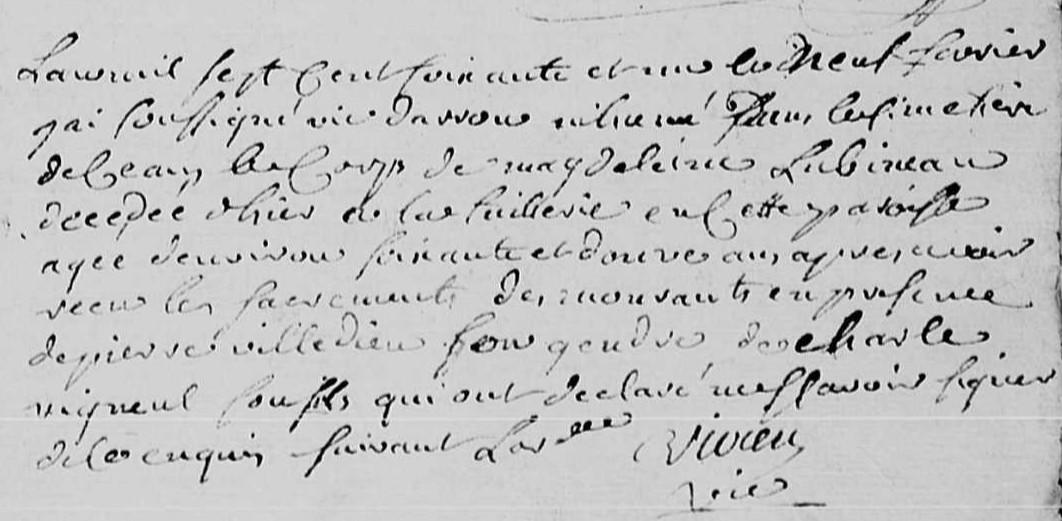 Lan mil sept cent soixante et un le neuf fevrier
jai soussigné vic darrou inhumé dans le simetiere
de ceans le corp de magdeleine Lubineau
decedee dhier a la tuillerie en cette paroisse
agee denviron soixante et douze ans apres avoir
receu les sacrements des mourants en presence
de pierre villedieu son gendre de charle
vigneul son fils qui ont declaré ne scavoir signer
de ce enquis suivant Lordce Vivien
vic